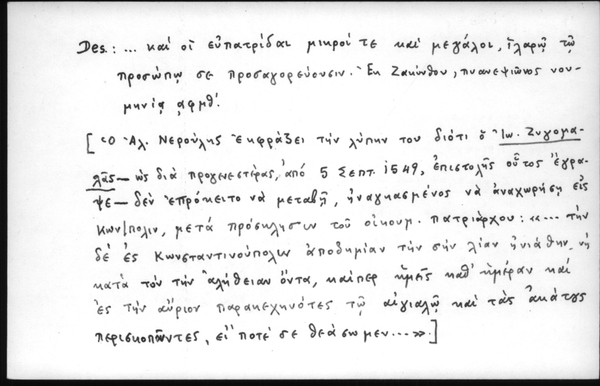 Des.: ... καὶ οἱ εὐπατρίδαι μικροί τε καὶ μεγάλοι, ἱλαρῷ τῷ
προσώπῳ σε προσαγορεύουσιν. Ἐκ Ζακύνθου, πυανεψιῶνος νου-
μηνίᾳ ͵αφμθ΄.
[Ὁ Ἀλ. Νερούλης ἐκφράζει τὴν λύπην του διότι ὁ Ἰω. Ζυγομα-
λᾶς — ὡς διὰ προγενεστέρας, ἀπὸ 5 Σεπτ. 1549, ἐπιστολῆς οὗτος ἔγρα-
ψε — δὲν ἐπρόκειτο νὰ μεταβῇ, ἠναγκασμένος νὰ ἀναχωρήσῃ εἰς
Κων/πολιν, μετὰ πρόσκλησιν τοῦ οἰκουμ. πατριάρχου: «... τὴν
δὲ ἐς Κωνσταντινούπολιν ἀποδημίαν τὴν σὴν λίαν ἠνιάθην, νὴ
κατὰ τὸν τὴν ἀλήθειαν ὄντα, καίπερ ἡμεῖς καθ' ἡμέραν καὶ
ἐς τὴν αὔριον παρακεχηνότες τῷ αἰγιαλῷ καὶ τὰς ἀκάτους
περισκοποῦντες, εἴ ποτέ σε θεάσωμεν...».]